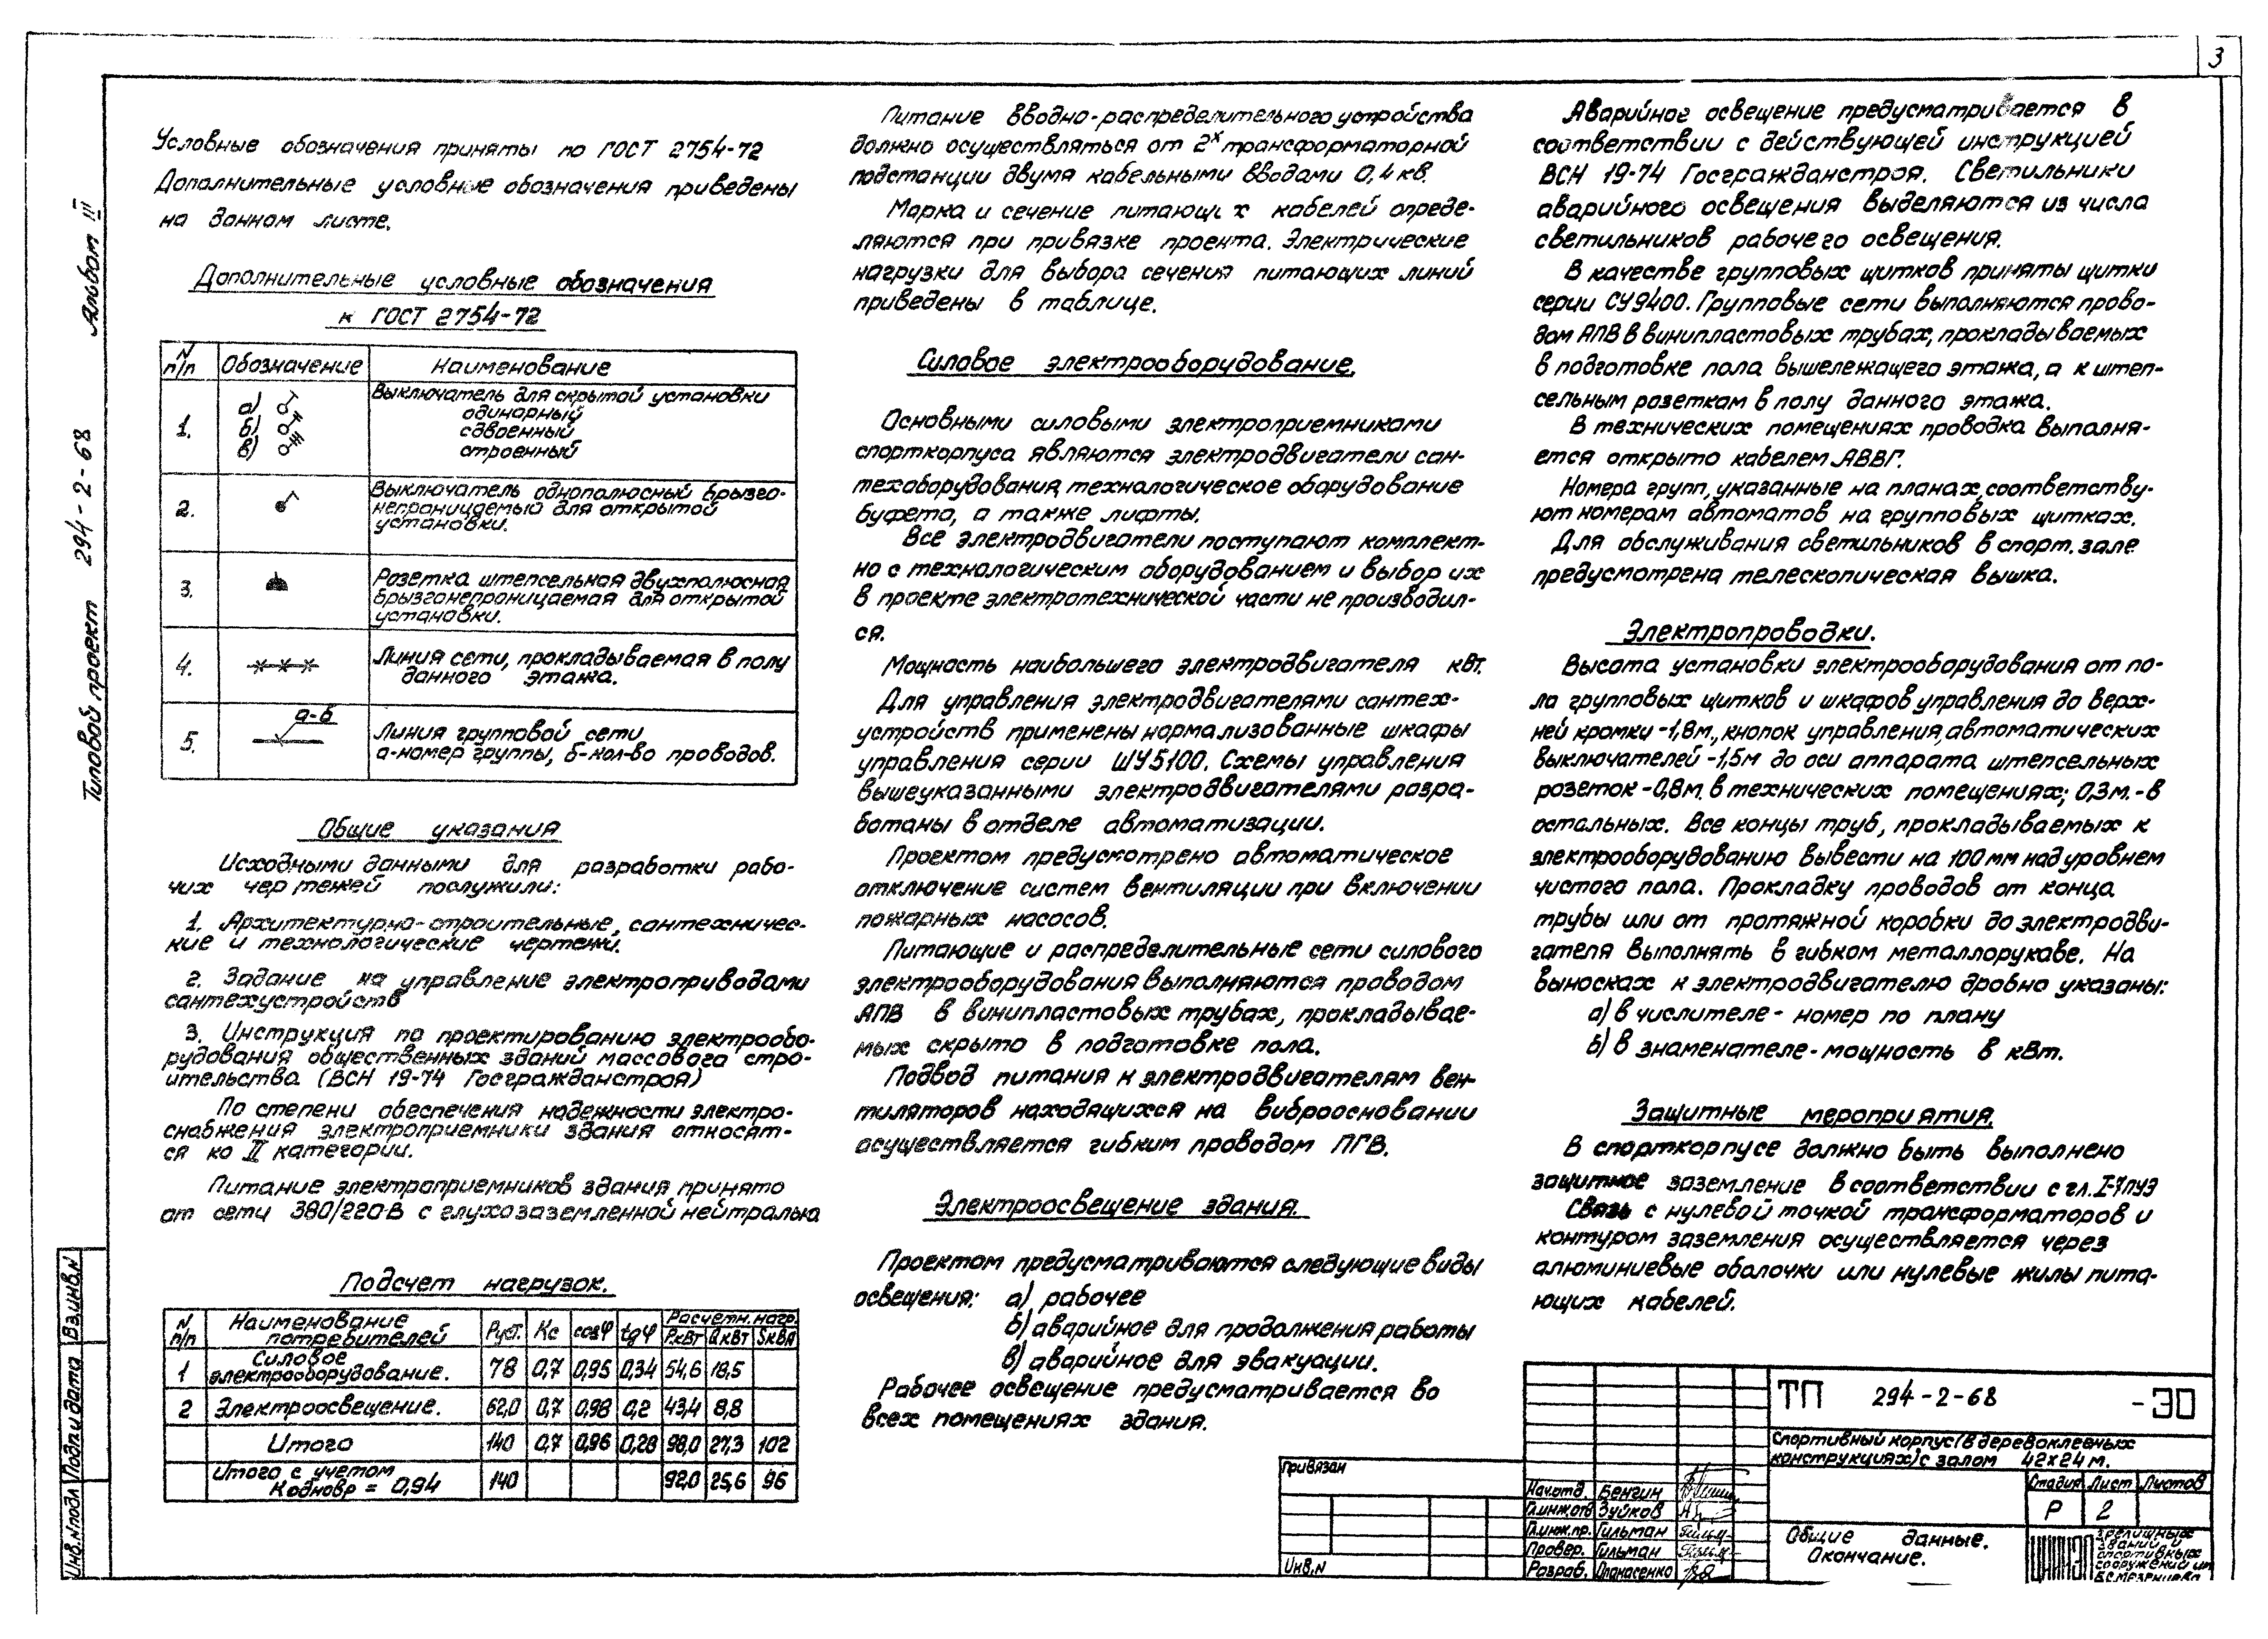 3
Альбом III
Типовой проект 294-2-68
Условные обозначения приняты по ГОСТ 2754-72
Дополнительные условные обозначения приведены
на данном листе.
Дополнительные условные обозначения
к ГОСТ 2754-72
N п/п Обозначение Наименование
1. а) б) в) Выключатель для скрытой установки
одинарный
сдвоенный
строенный
2. Выключатель однополюсный брызго-
непроницаемый для открытой
установки.
3. Розетка штепсельная двухполюсная
брызгонепроницаемая для открытой
установки.
4. Линия сети, прокладываемая в полу
данного этажа.
5. а-б Линия групповой сети
а-номер группы, б-кол-во проводов.
Общие указания
Исходными данными для разработки рабо-
чих чертежей послужили:
1. Архитектурно-строительные, сантехничес-
кие и технологические чертежи.
2. Задание на управление электроприводами
сантехустройств
3. Инструкция по проектированию электрообо-
рудования общественных зданий массового стро-
ительства (ВСН 19-74 Госгражданстроя)
По степени обеспечения надежности электро-
снабжения электроприемники здания относят-
ся ко II категории.
Питание электроприемников здания принято
от сети 380/220В с глухозаземленной нейтралью
Подсчет нагрузок.
N п/п Наименование потребителей Руст. Кс cosφ tgφ Расчетн. нагр. РкВт QкВт SкВА
1 Силовое электрооборудование. 78 0,7 0,95 0,34 54,6 18,5
2 Электроосвещение. 62,0 0,7 0,98 0,2 43,4 8,8
Итого 140 0,7 0,96 0,28 98,0 27,3 102
Итого с учетом Коднovр = 0,94 140 92,0 25,6 96
Питание вводно-распределительного устройства
должно осуществляться от 2х трансформаторной
подстанции двумя кабельными вводами 0,4 кв.
Марка и сечение питающих кабелей опреде-
ляются при привязке проекта. Электрические
нагрузки для выбора сечения питающих линий
приведены в таблице.
Силовое электрооборудование.
Основными силовыми электроприемниками
спорткорпуса являются электродвигатели сан-
техоборудования, технологическое оборудование
буфета, а также лифты.
Все электродвигатели поступают комплект-
но с технологическим оборудованием и выбор их
в проекте электротехнической части не производил-
ся.
Мощность наибольшего электродвигателя кВт.
Для управления электродвигателями сантех-
устройств применены нормализованные шкафы
управления серии ШУ5100. Схемы управления
вышеуказанными электродвигателями разра-
ботаны в отделе автоматизации.
Проектом предусмотрено автоматическое
отключение систем вентиляции при включении
пожарных насосов.
Питающие и распределительные сети силового
электрооборудования выполняются проводом
АПВ в винипластовых трубах, прокладывае-
мых скрыто в подготовке пола.
Подвод питания к электродвигателям вен-
тиляторов находящихся на виброосновании
осуществляется гибким проводом ПГВ.
Электроосвещение здания.
Проектом предусматриваются следующие виды
освещения: а) рабочее
б) аварийное для продолжения работы
в) аварийное для эвакуации.
Рабочее освещение предусматривается во
всех помещениях здания.
Аварийное освещение предусматривается в
соответствии с действующей инструкцией
ВСН 19-74 Госгражданстроя. Светильники
аварийного освещения выделяются из числа
светильников рабочего освещения.
В качестве групповых щитков приняты щитки
серии СУ9400. Групповые сети выполняются прово-
дом АПВ в винипластовых трубах, прокладываемых
в подготовке пола вышележащего этажа, а к штеп-
сельным розеткам в полу данного этажа.
В технических помещениях проводка выполня-
ется открыто кабелем АВВГ.
Номера групп, указанные на планах, соответству-
ют номерам автоматов на групповых щитках.
Для обслуживания светильников в спорт. зале
предусмотрена телескопическая вышка.
Электропроводки.
Высота установки электрооборудования от по-
ла групповых щитков и шкафов управления до верх-
ней кромки -1,8м., кнопок управления, автоматических
выключателей -1,5м до оси аппарата штепсельных
розеток -0,8м. в технических помещениях; 0,3м. -в
остальных. Все концы труб, прокладываемых к
электрооборудованию вывести на 100мм над уровнем
чистого пола. Прокладку проводов от конца
трубы или от протяжной коробки до электродви-
гателя выполнять в гибком металлорукаве. На
выносках к электродвигателю дробно указаны:
а) в числителе - номер по плану
б) в знаменателе - мощность в кВт.
Защитные мероприятия.
В спорткорпусе должно быть выполнено
защитное заземление в соответствии с гл. I-7 ПУЭ
Связь с нулевой точкой трансформаторов и
контуром заземления осуществляется через
алюминиевые оболочки или нулевые жилы пита-
ющих кабелей.
Привязан
Инв.N
Нач.отд. Бенгин
Гл.инж.отд Зуйков
Гл.инж.пр. Гильман
Провер. Гильман
Разраб. Опанасенко
ТП 294-2-68 -ЭО
Спортивный корпус (в деревоклееных
конструкциях) с залом 42х24м.
Стадия Лист Листов
Р 2
Общие данные.
Окончание.
зрелищных
зданий и
спортивных
сооружений им.
Б.С.Мезенцева
Инв.N подл Подп и дата Вз.инв.N